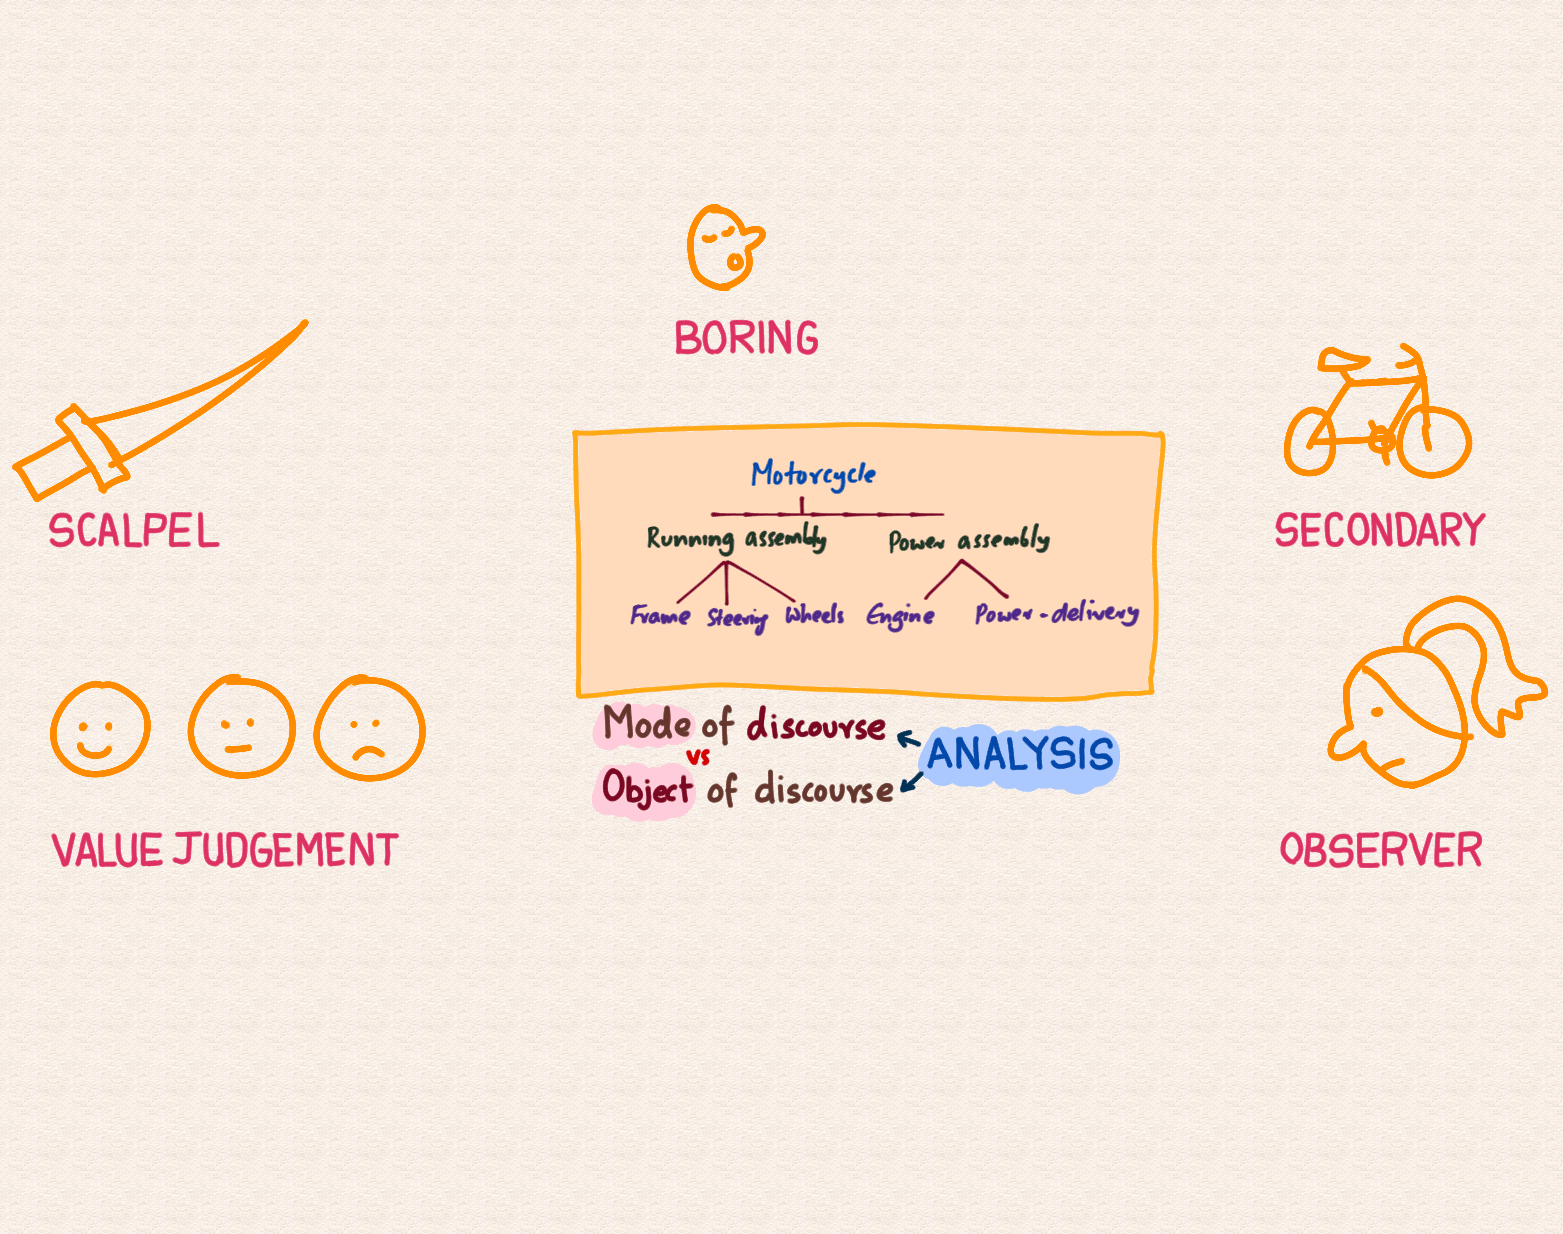 BORING
SCALPEL
SECONDARY
Motorcycle
Running assembly Power assembly
Frame Steering Wheels Engine Power-delivery
Mode of discourse
vs
Object of discourse
ANALYSIS
VALUE JUDGEMENT
OBSERVER